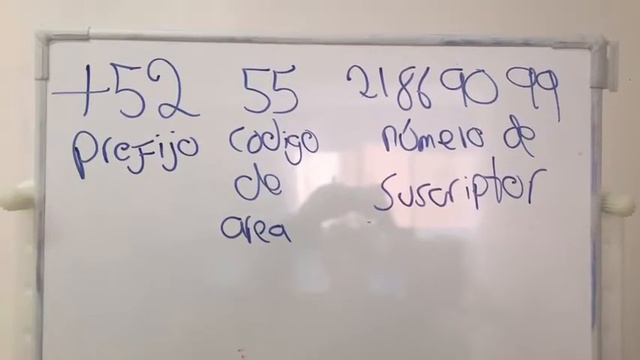 +52 55 21869099
prefijo codigo número de
de suscriptor
area